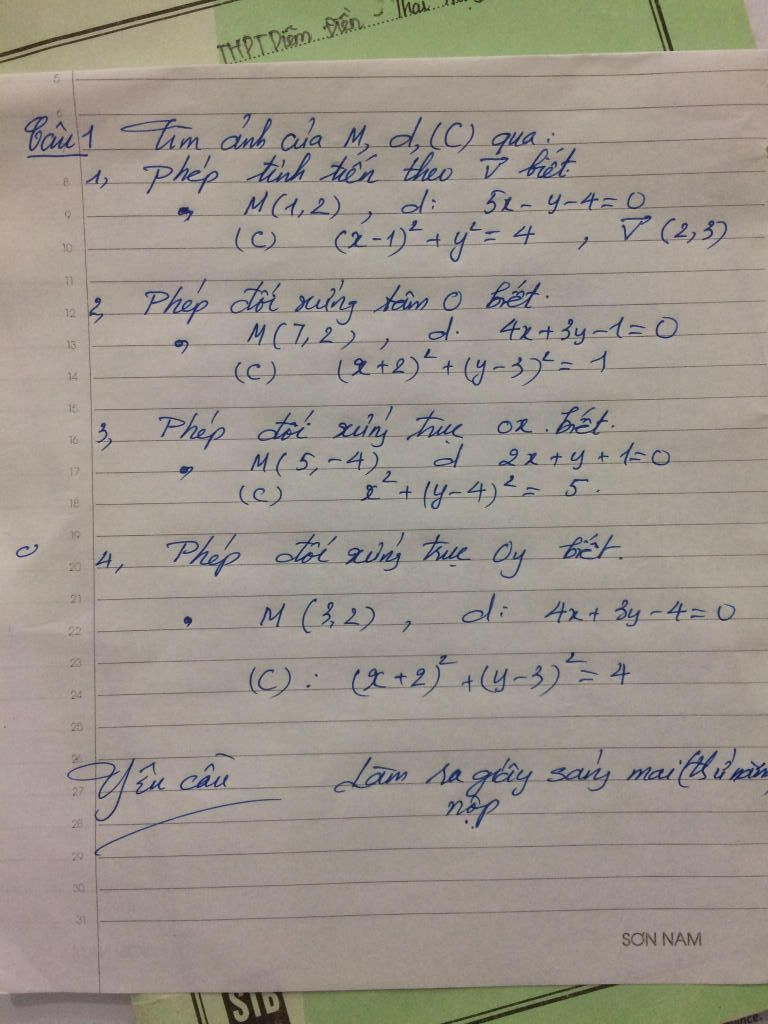 THPT Diêm Điền - Thái
Câu 1 Tìm ảnh của M, d, (C) qua:
1, Phép tịnh tiến theo v⃗ biết
M(1,2), d: 5x-y-4=0
(C) (x-1)² + y² = 4, v⃗ (2,3)
2, Phép đối xứng tâm O biết.
M(7,2), d. 4x+3y-1=0
(C) (x+2)² + (y-3)² = 1
3, Phép đối xứng trục Ox. biết.
M(5,-4) d 2x+y+1=0
(C) x² + (y-4)² = 5.
4, Phép đối xứng trục Oy biết.
M (3,2), d: 4x+3y-4=0
(C): (x+2)² + (y-3)² = 4
Yêu cầu Làm ra giấy sáng mai (thứ năm)
nộp
5
6
8
9
10
11
12
13
14
15
16
17
18
19
20
21
22
23
24
25
26
27
28
29
30
31
SƠN NAM
STB